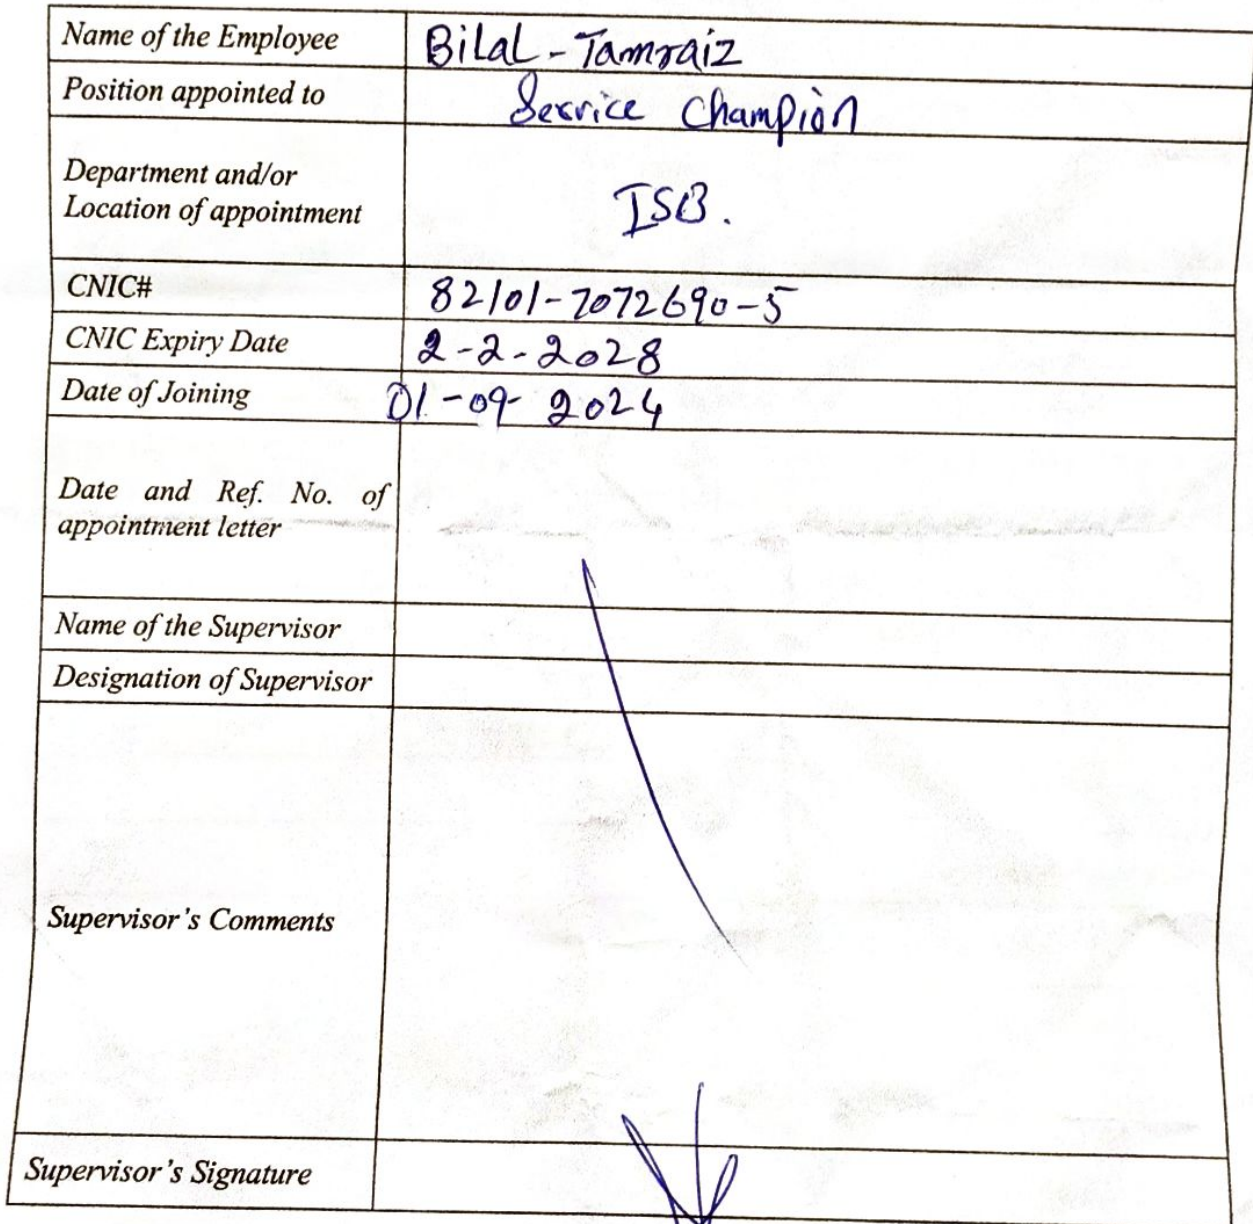 Name of the Employee Bilal - Tamraiz
Position appointed to Service Champion
Department and/or
Location of appointment ISB.
CNIC# 82101-7072690-5
CNIC Expiry Date 2-2-2028
Date of Joining 01-09-2024
Date and Ref. No. of
appointment letter
Name of the Supervisor
Designation of Supervisor
Supervisor's Comments
Supervisor's Signature